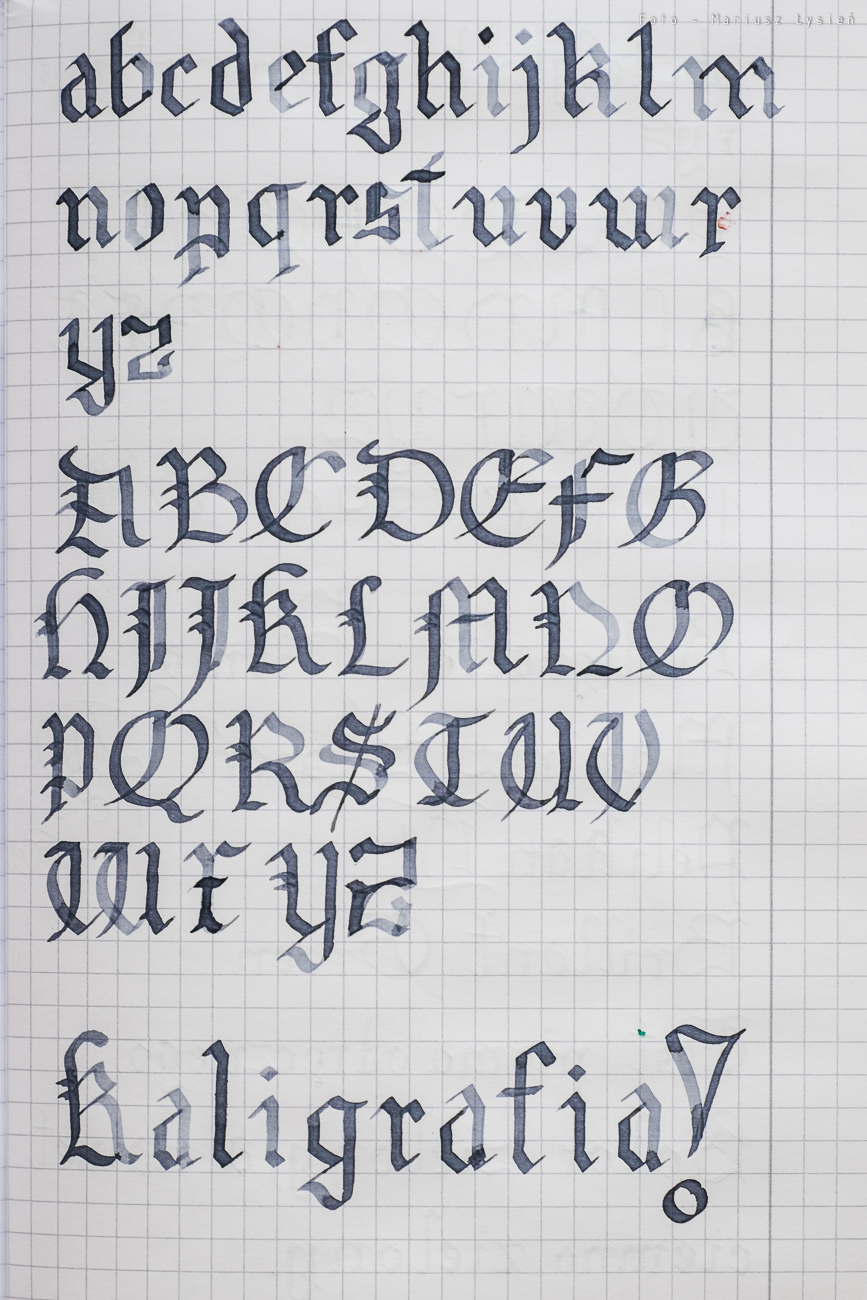 Foto - Mariusz Łysień
abcdefghijklm
nopqrstuvwx
yz
ABCDEFG
HIJKLMNO
PQRSTUV
WXYZ
Kaligrafia!